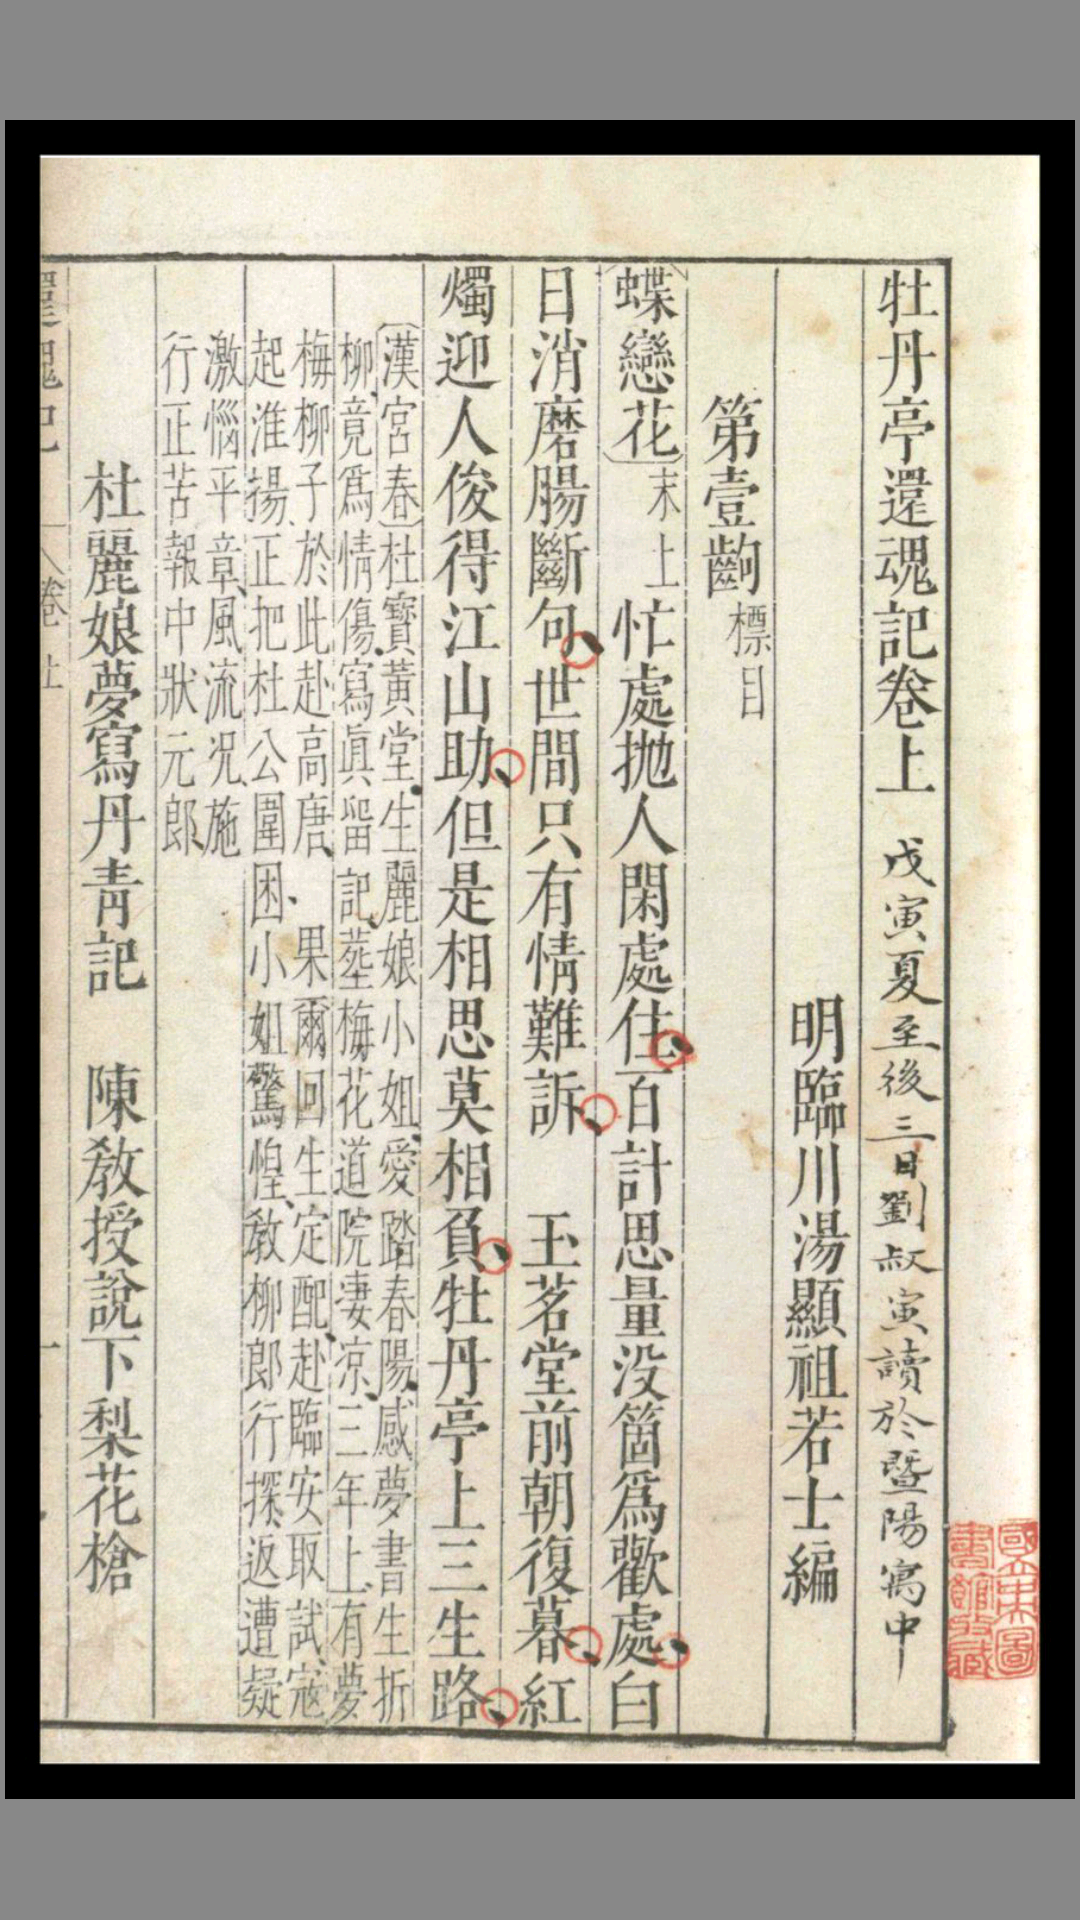 牡丹亭還魂記卷上 戊寅夏至後三日劉叔寅讀於暨陽寓中
明臨川湯顯祖若士編
第壹齣 標目
〔蝶戀花〕末上 忙處拋人閑處住、百計思量没箇爲歡處、白
日消磨腸斷句、世間只有情難訴、 玉茗堂前朝復暮、紅
燭迎人俊得江山助、但是相思莫相負、牡丹亭上三生路、
〔漢宮春〕杜寶黃堂、生麗娘小姐、愛踏春陽、感夢書生折
柳、竟爲情傷、寫眞留記、塟梅花道院淒凉、三年上、有夢
梅柳子、於此赴高唐、 果爾回生定配、赴臨安取試、寇
起淮揚、正把杜公圍困、小姐驚惶、敎柳郎行探、返遭疑
激惱平章、風流況、施
行正苦、報中狀元郎、
杜麗娘夢寫丹靑記 陳敎授說下梨花槍
國立中央圖
書館收藏